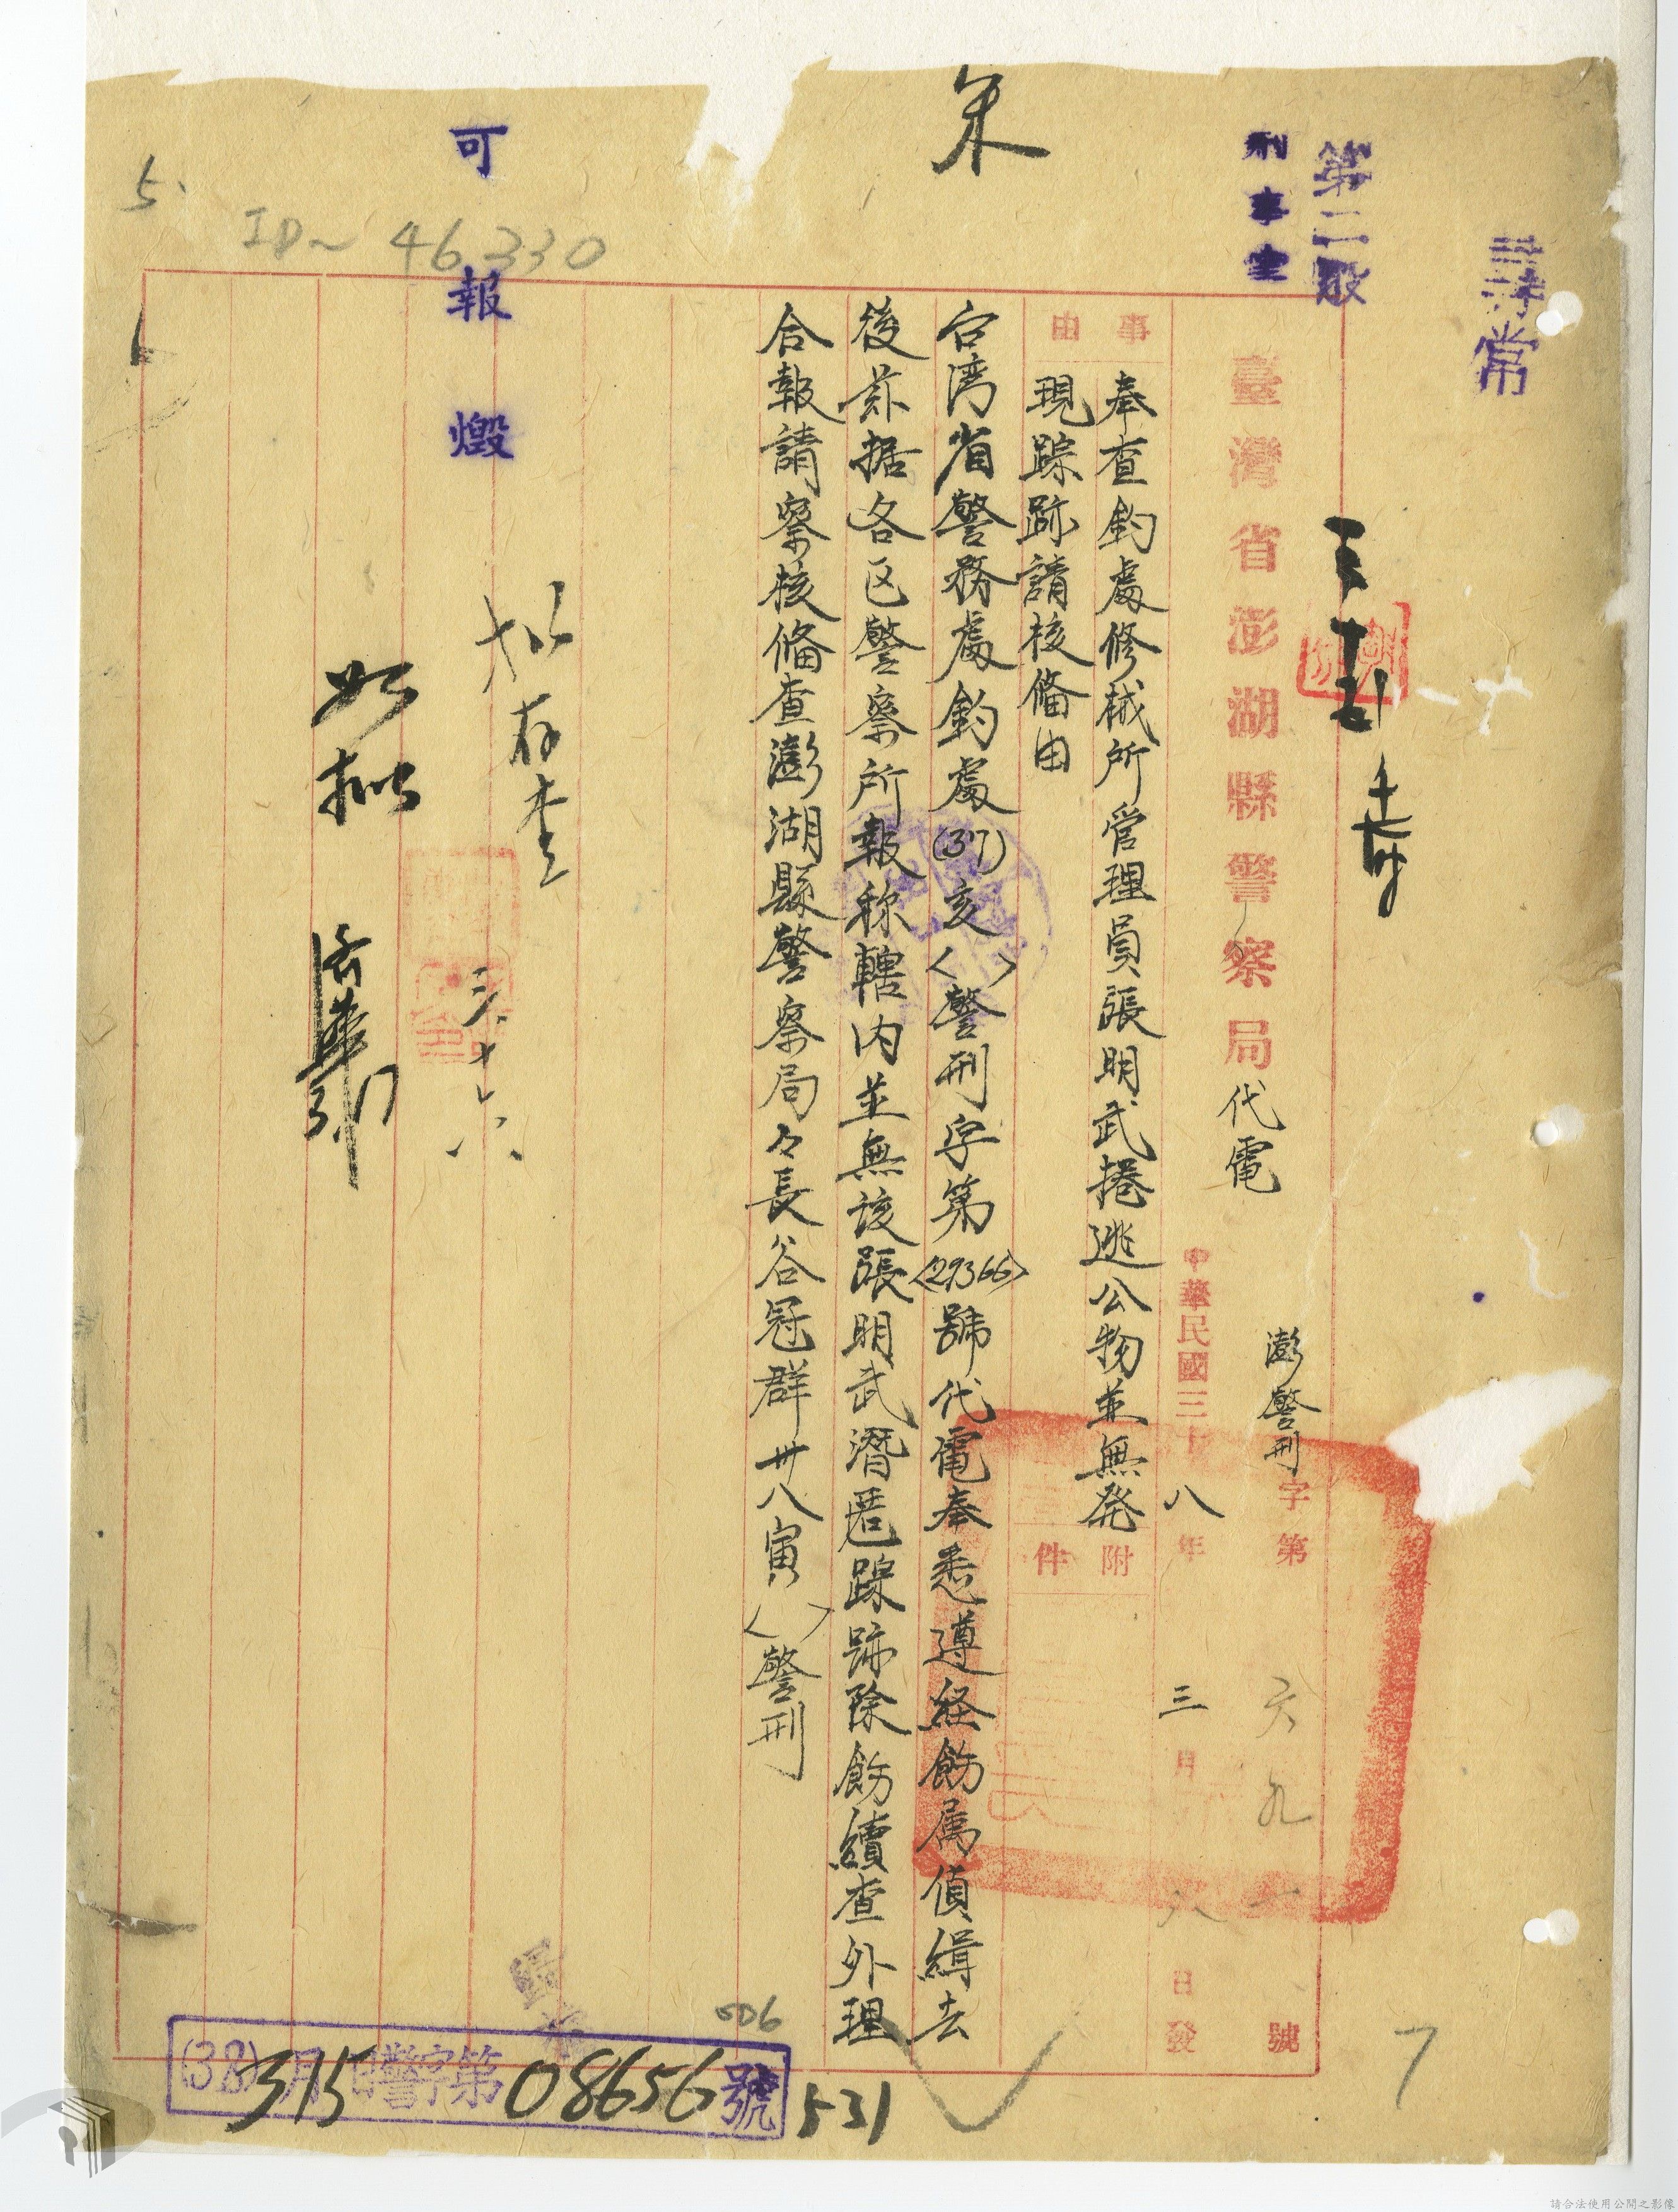 尋常
第二股
刑事室
臺灣省澎湖縣警察局代電
澎警刑字第六九一號
中華民國三十八年三月八日發
事由
奉查鈞處修械所管理員張明武捲逃公物並無発
現踪跡請核俻由
附件
台湾省警務處鈞處(37)亥< >警刑字第<29366>號代電奉悉遵経飭属偵緝去
後茲据各区警察所報称轄内並無該張明武潛匿踪跡除飭續查外理
合報請察核俻查澎湖縣警察局々長谷冠群卅八寅< >警刑
可報燬
拟存查
三、十六
如拟
3.17
ID~ 46330
5.
7
506
(38)3月15日警字第08656號
531
請合法使用公開之影像